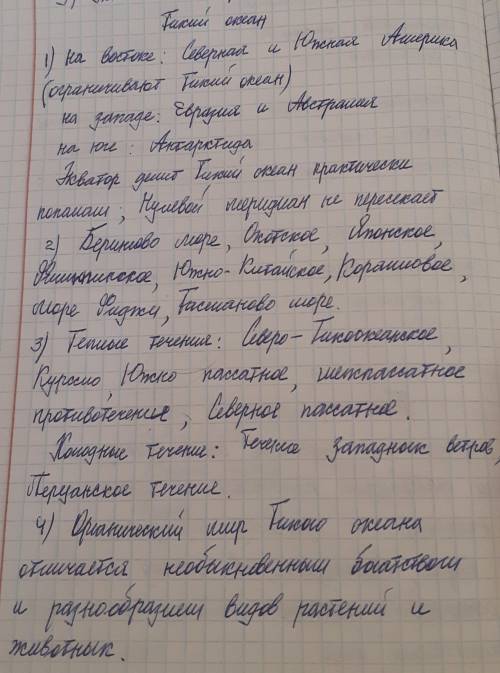 Тихий океан
1) на востоке: Северная и Южная Америка
(ограничивают Тихий океан)
на западе: Евразия и Австралия
на юге: Антарктида
Экватор делит Тихий океан практически
пополам; Нулевой меридиан не пересекает
2) Берингово море, Охотское, Японское,
Филиппинское, Южно-Китайское, Коралловое,
море Фиджи, Тасманово море.
3) Теплые течения: Северо-Тихоокеанское,
Куросио, Южно пассатное, межпассатное
противотечение, Северное пассатное.
Холодные течение: Течение западных ветров,
Перуанское течение.
4) Органический мир Тихого океана
отличается необыкновенным богатством
и разнообразием видов растений и
животных.